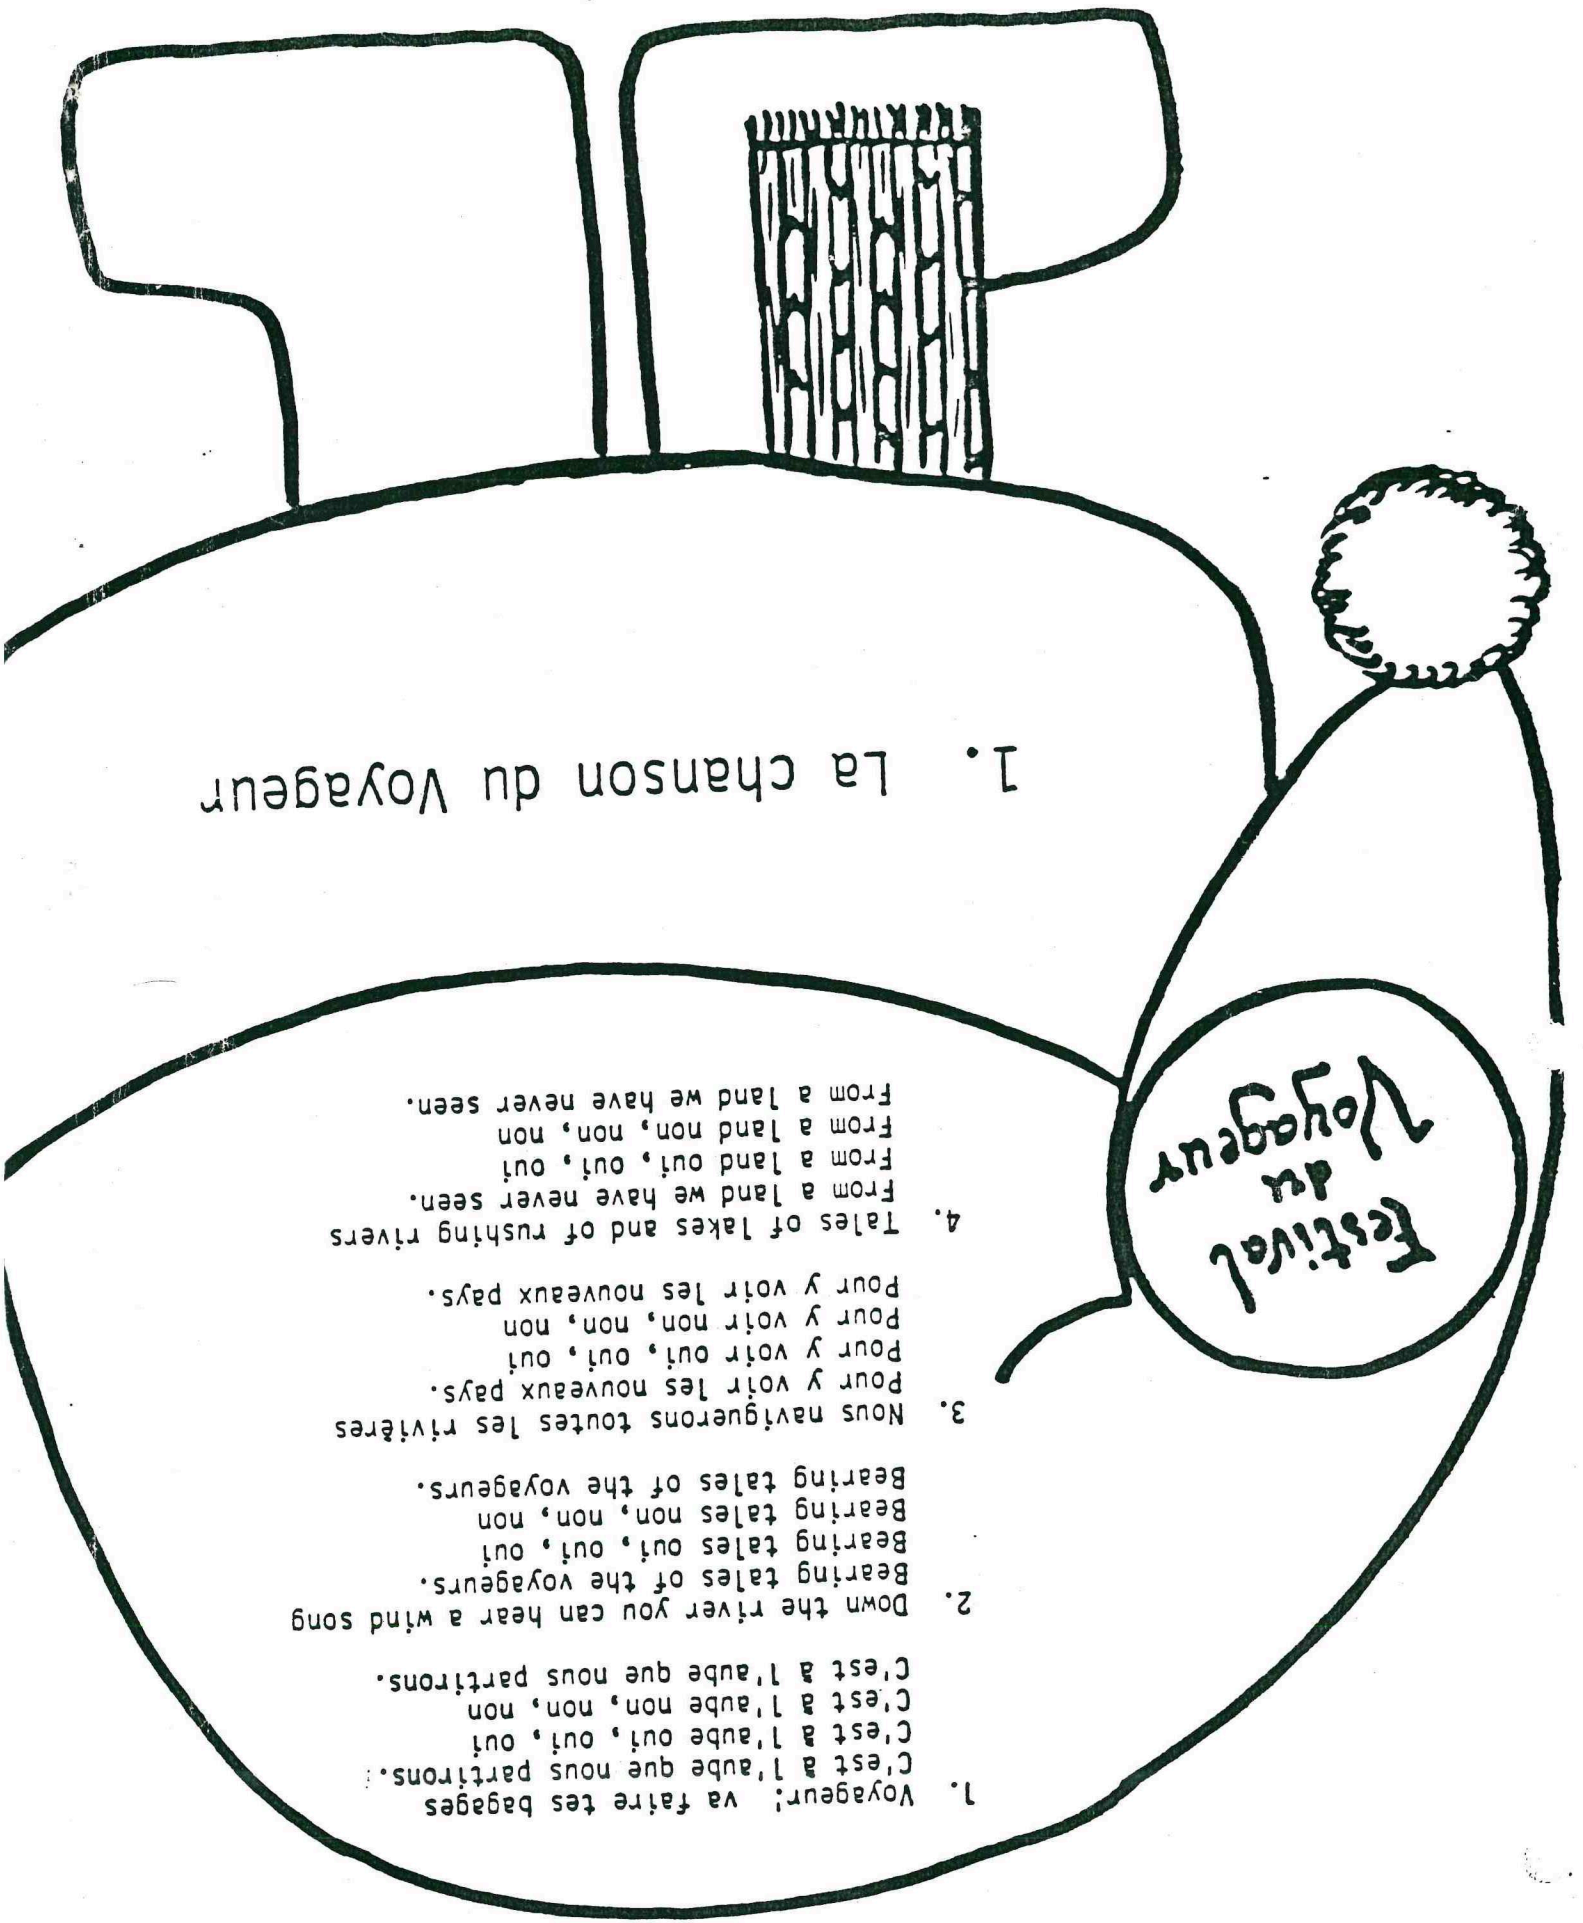 Festival
du
Voyageur
1. Voyageur! va faire tes bagages
C'est à l'aube que nous partirons.
C'est à l'aube oui, oui, oui
C'est à l'aube non, non, non
C'est à l'aube que nous partirons.
2. Down the river you can hear a wind song
Bearing tales of the voyageurs.
Bearing tales oui, oui, oui
Bearing tales non, non, non
Bearing tales of the voyageurs.
3. Nous naviguerons toutes les rivières
Pour y voir les nouveaux pays.
Pour y voir oui, oui, oui
Pour y voir non, non, non
Pour y voir les nouveaux pays.
4. Tales of lakes and of rushing rivers
From a land we have never seen.
From a land oui, oui, oui
From a land non, non, non
From a land we have never seen.
1. La chanson du Voyageur